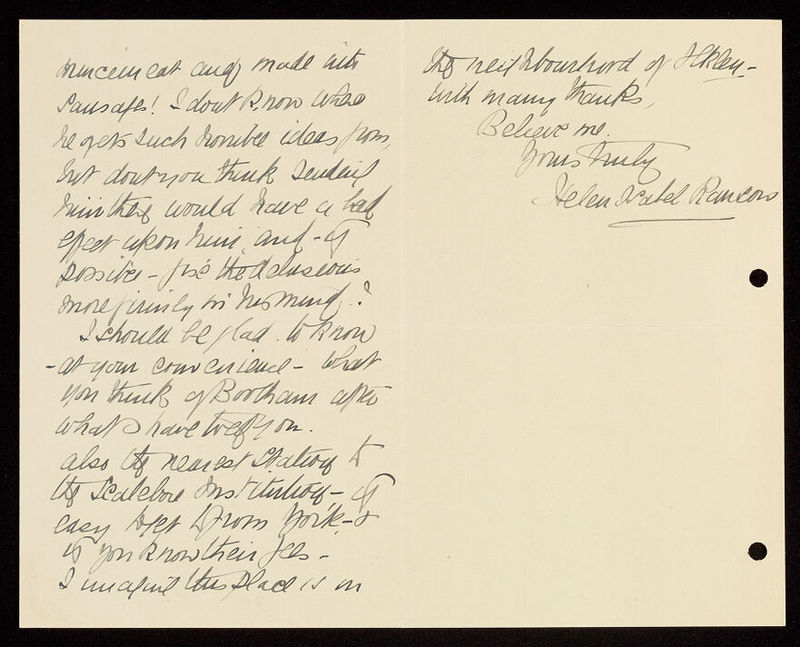 mincemeat and made into
sausages! I dont know where
he gets such horrible ideas from,
but dont you think sending
him there would have a bad
effect upon him, and - if
possible - fix the delusions
more firmly in his mind?
I should be glad to know
- at your convenience - what
you think of Bootham after
what I have told you.
also the nearest Station to
the Scalebor Institution - if
easy to get to from York - &
if you know their fees -
I imagine this place is in
the neighbourhood of Ilkley -
With many thanks,
Believe me.
Yours truly
Helen Isabel